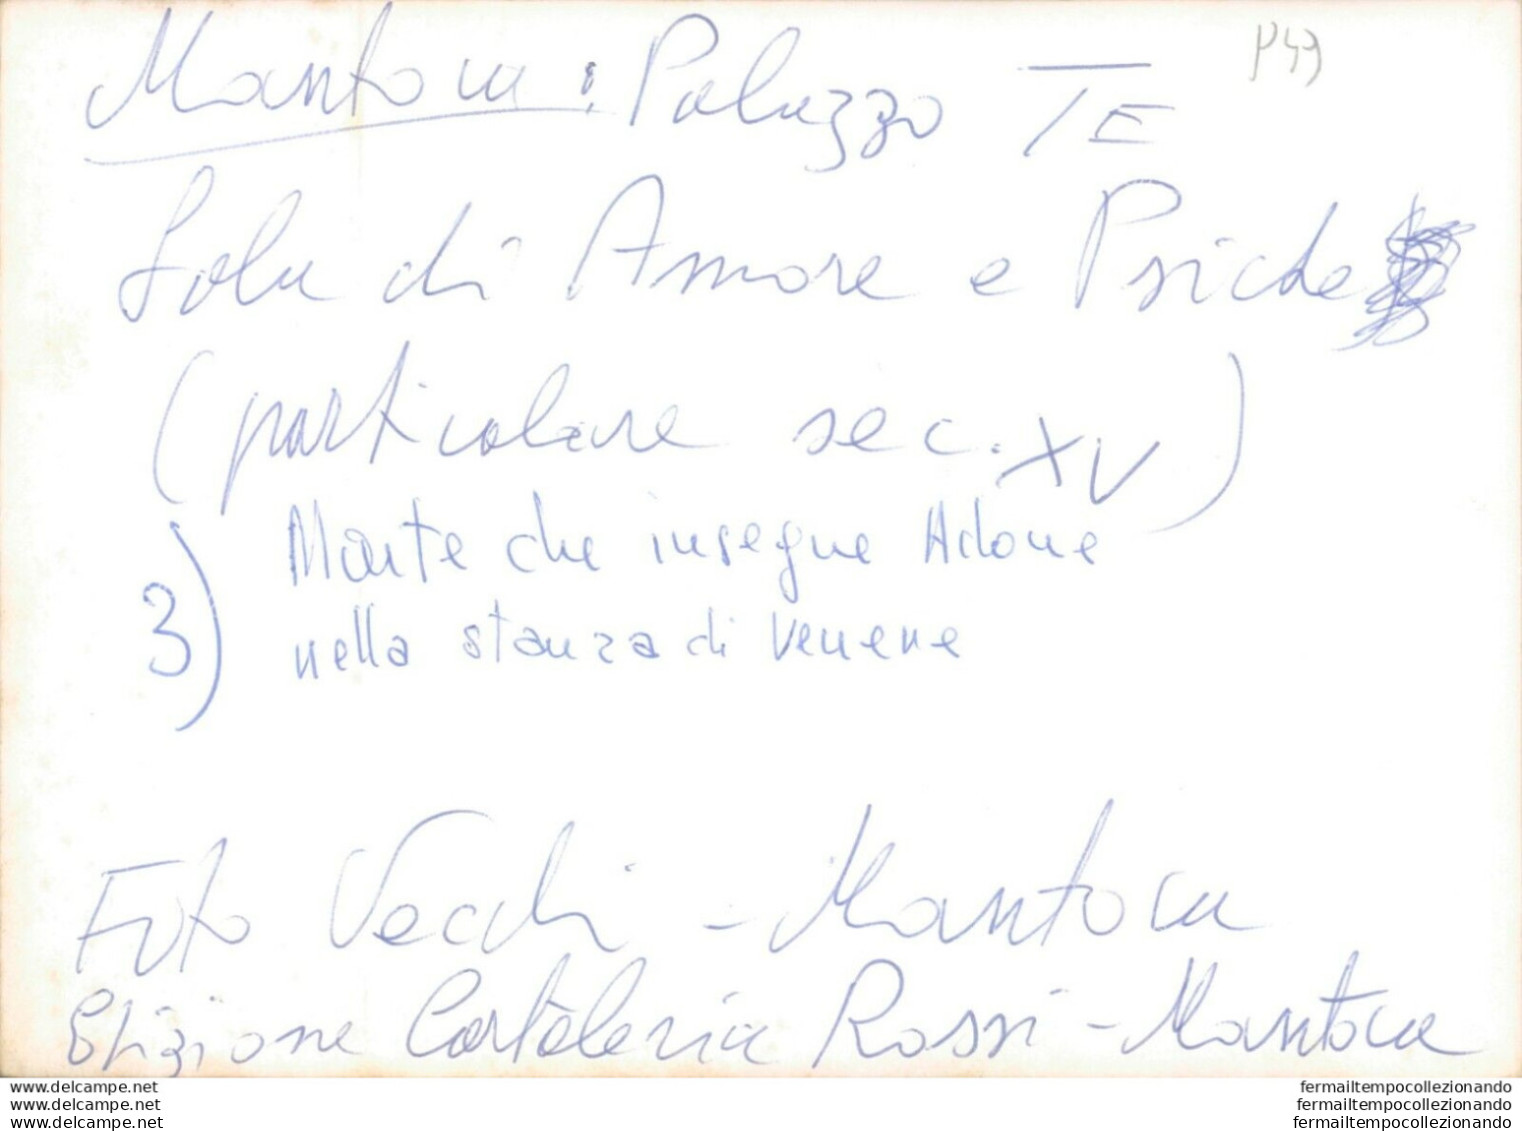 Mantova: Palazzo TE
P49
Sala di Amore e Psiche
(particolare sec. XV)
3) Marte che insegue Adone
nella stanza di Venere
Foto Vecchi - Mantova
Edizione Cartoleria Rossi - Mantova
www.delcampe.net
www.delcampe.net
www.delcampe.net
fermailtempocollezionando
fermailtempocollezionando
fermailtempocollezionando